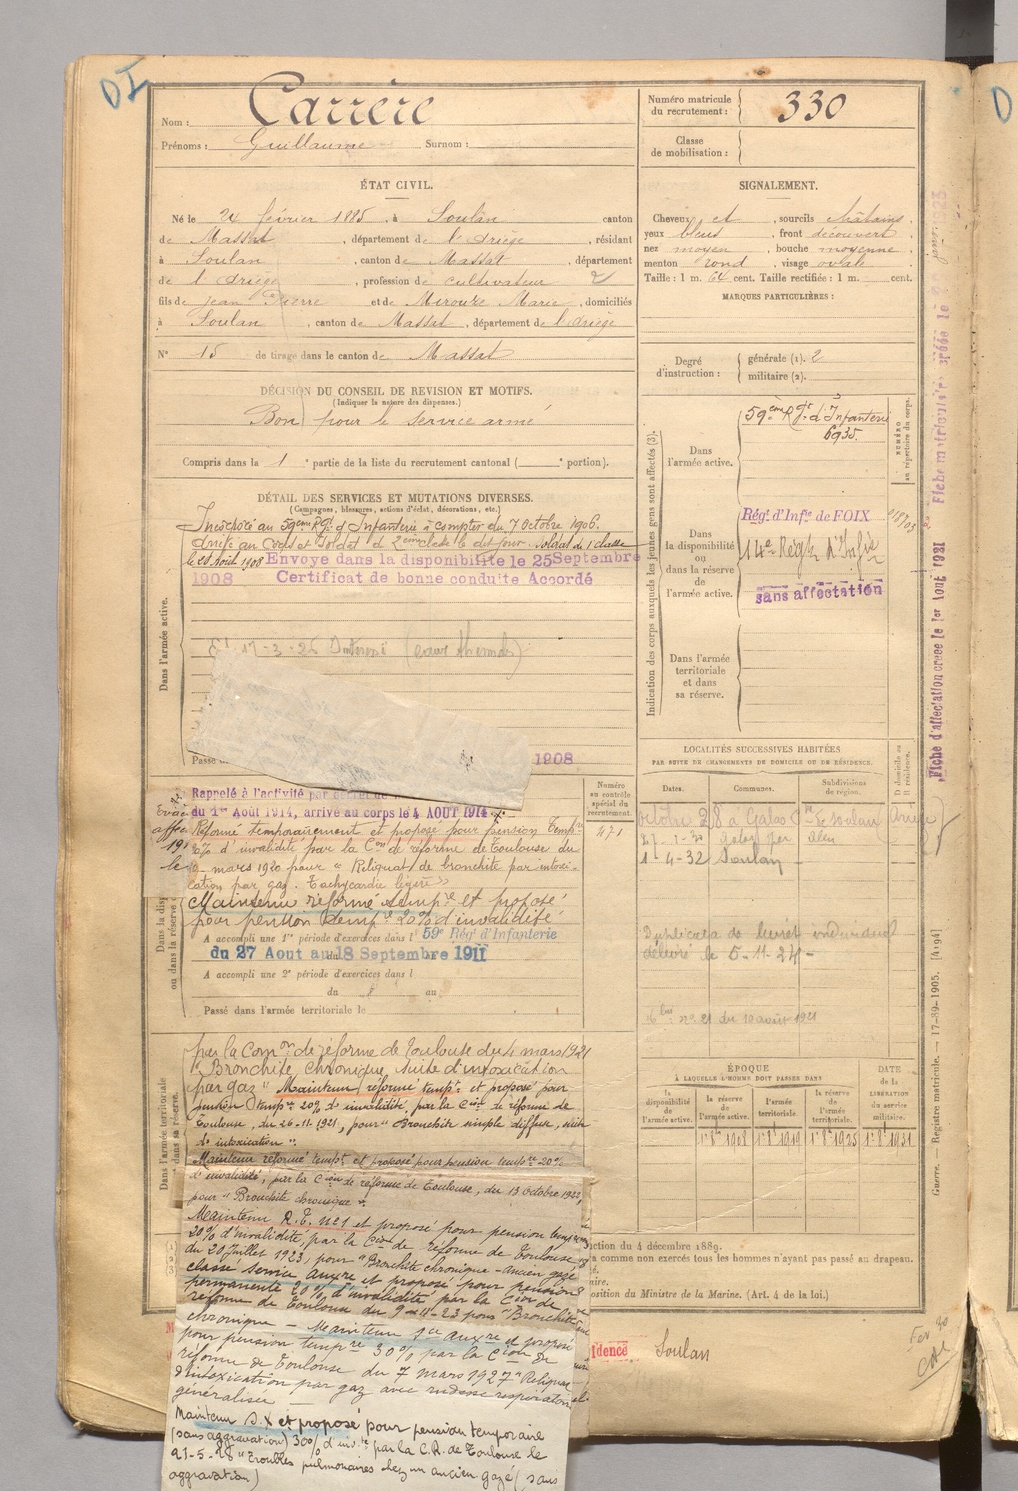 DI
Nom : Carrère
Prénoms : Guillaume Surnom :
Numéro matricule du recrutement : 330
Classe de mobilisation :
ÉTAT CIVIL.
Né le 24 février 1885, à Soulan canton
de Massat, département de l'Ariège, résidant
à Soulan, canton de Massat, département
de l'Ariège, profession de cultivateur 2
fils de Jean Pierre et de Mirouze Marie, domiciliés
à Soulan, canton de Massat, département de l'Ariège
N° 15 de tirage dans le canton de Massat
SIGNALEMENT.
Cheveux et , sourcils châtains,
yeux bleus , front découvert
nez moyen , bouche moyenne
menton rond , visage ovale
Taille : 1 m. 64 cent. Taille rectifiée : 1 m. cent.
MARQUES PARTICULIÈRES :
Degré d'instruction : générale (1). 2
militaire (2). 3
DÉCISION DU CONSEIL DE REVISION ET MOTIFS.
(Indiquer la nature des dispenses.)
Bon pour le service armé
Compris dans la 1e partie de la liste du recrutement cantonal (e portion).
DÉTAIL DES SERVICES ET MUTATIONS DIVERSES.
(Campagnes, blessures, actions d'éclat, décorations, etc.)
Incorporé au 59ème Rgt d'Infanterie à compter du 7 Octobre 1906.
Arrivé au Corps et Soldat de 2ème classe le dit jour. Soldat de 1e classe
le 20 août 1908 Envoyé dans la disponibilité le 25 Septembre
1908 Certificat de bonne conduite Accordé
17-3-26
Dans l'armée active.
Passé 1908
Indication des corps auxquels les jeunes gens sont affectés (3).
Dans l'armée active.
59ème Rgt d'Infanterie
6935.
NUMÉRO au répertoire du corps.
Dans la disponibilité ou dans la réserve de l'armée active.
Régt d'Infie de FOIX
14e Régt d'Infie
sans affectation
Dans l'armée territoriale et dans sa réserve.
Fiche d'affectation créée le 1er Août 1921
LOCALITÉS SUCCESSIVES HABITÉES
PAR SUITE DE CHANGEMENTS DE DOMICILE OU DE RÉSIDENCE.
Dates. Communes. Subdivisions de région. D domicile ou R résidence.
1-4-32 Soulan
Duplicata de livret individuel
délivré le 5-11-24
Rappelé à l'activité par décret de
du 1er Août 1914, arrivé au corps le 4 AOUT 1914
Numéro au contrôle spécial du recrutement.
471
Réformé temporairement et proposé pour pension temp.re
20% d'invalidité par la Con de réforme de Toulouse du
mars 1920 pour « Reliquat de bronchite par intoxi-
cation par gaz. Tachycardie légère »
Maintenu réformé temp.re et proposé
pour pension temp.re 20% d'invalidité
A accompli une 1re période d'exercices dans l 59e Régt d'Infanterie
du 27 Aout au 18 Septembre 1911
A accompli une 2e période d'exercices dans l
du au
Passé dans l'armée territoriale le
par la Comon de réforme de Toulouse du 4 mars 1921
"Bronchite chronique, suite d'intoxication
par gaz" Maintenu réformé tempt. et proposé pour
pension tempre 20% d'invalidité, par la Cion de réforme de
Toulouse, du 26-11-1921, pour "Bronchite simple diffuse, suite
d'intoxication".
Maintenu réformé tempt. et proposé pour pension tempre 20%
d'invalidité, par la Cion de réforme de Toulouse, du 13 octobre 1922,
pour "Bronchite chronique".
Maintenu R.T. n°1 et proposé pour pension temp.
20% d'invalidité, par la Cion de réforme de Toulouse
du 20 Juillet 1923, pour "Bronchite chronique - ancien gazé
classé service auxre et proposé pour pension
permanente 20% d'invalidité par la Cion de
réforme de Toulouse du 9-11-23 pour "Bronchite
chronique - Maintenu sce auxre et proposé
pour pension tempre 30% par la Cion de
réforme de Toulouse du 7 mars 1927 "Reliquat
d'intoxication par gaz avec rudesse respiratoire
généralisée
Maintenu S.X et proposé pour pension temporaire
(sans aggravation) 30% d'invté par la C.R. de Toulouse le
21-5-28 "Troubles pulmonaires chez un ancien gazé (sans
aggravation)
Dans l'armée territoriale et dans sa réserve.
ÉPOQUE
À LAQUELLE L'HOMME DOIT PASSER DANS
la disponibilité de l'armée active. la réserve de l'armée active. l'armée territoriale. la réserve de l'armée territoriale. DATE de la LIBÉRATION du service militaire.
ction du 4 décembre 1889.
a comme non exercés tous les hommes n'ayant pas passé au drapeau.
osition du Ministre de la Marine. (Art. 4 de la loi.)
idence Soulan
Guerre. — Registre matricule. — 17-89-1905. [4194]